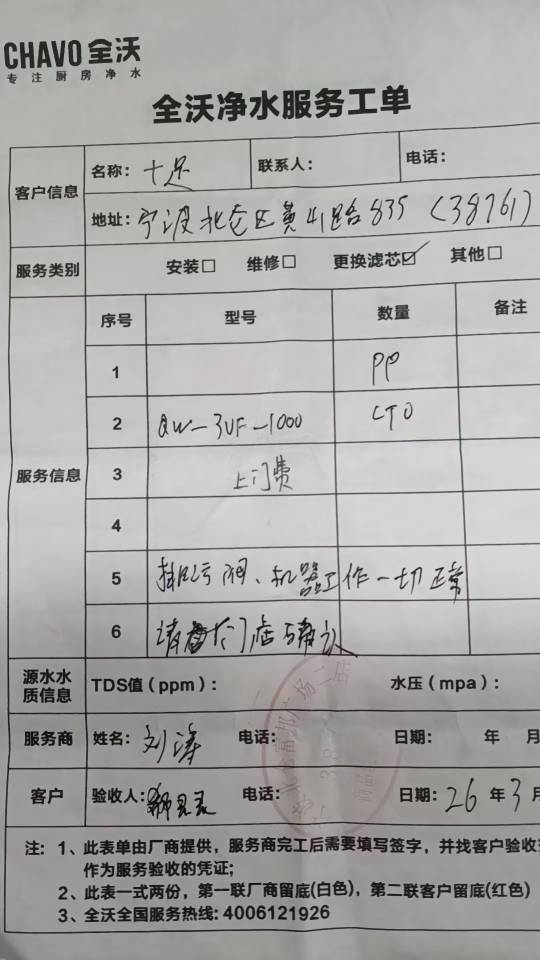 CHAVO 全沃
专注厨房净水
全沃净水服务工单
客户信息
名称：十足
联系人：
电话：
地址：宁波北仑区黄山路835（38761）
服务类别
安装□ 维修□ 更换滤芯☑ 其他□
服务信息
序号 型号 数量 备注
1 PP
2 QW-3UF-1000 CTO
3 上门费
4
5 排口污阀、机器工作一切正常
6 请 门店 确认
源水水质信息
TDS值（ppm）：
水压（mpa）：
服务商
姓名：刘涛
电话：
日期： 年 月
客户
验收人：
电话：
日期：26年3月
注：1、此表单由厂商提供，服务商完工后需要填写签字，并找客户验收
作为服务验收的凭证；
2、此表一式两份，第一联厂商留底(白色)，第二联客户留底(红色)
3、全沃全国服务热线：4006121926